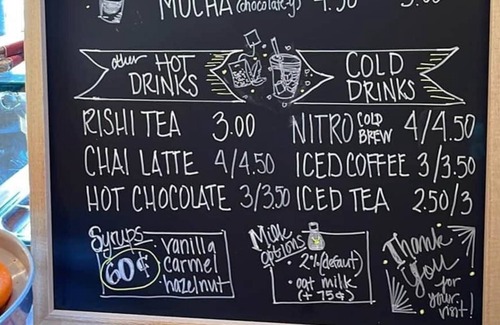 MOCHA (chocolate-y) 4.50
other HOT DRINKS
RISHI TEA 3.00
CHAI LATTE 4/4.50
HOT CHOCOLATE 3/3.50
COLD DRINKS
NITRO COLD BREW 4/4.50
ICED COFFEE 3/3.50
ICED TEA 2.50/3
Syrups
60¢
• vanilla
• carmel
• hazelnut
Milk options
• 2% (defaut)
• oat milk
(+ 75¢)
Thank
You
for
your
visit!